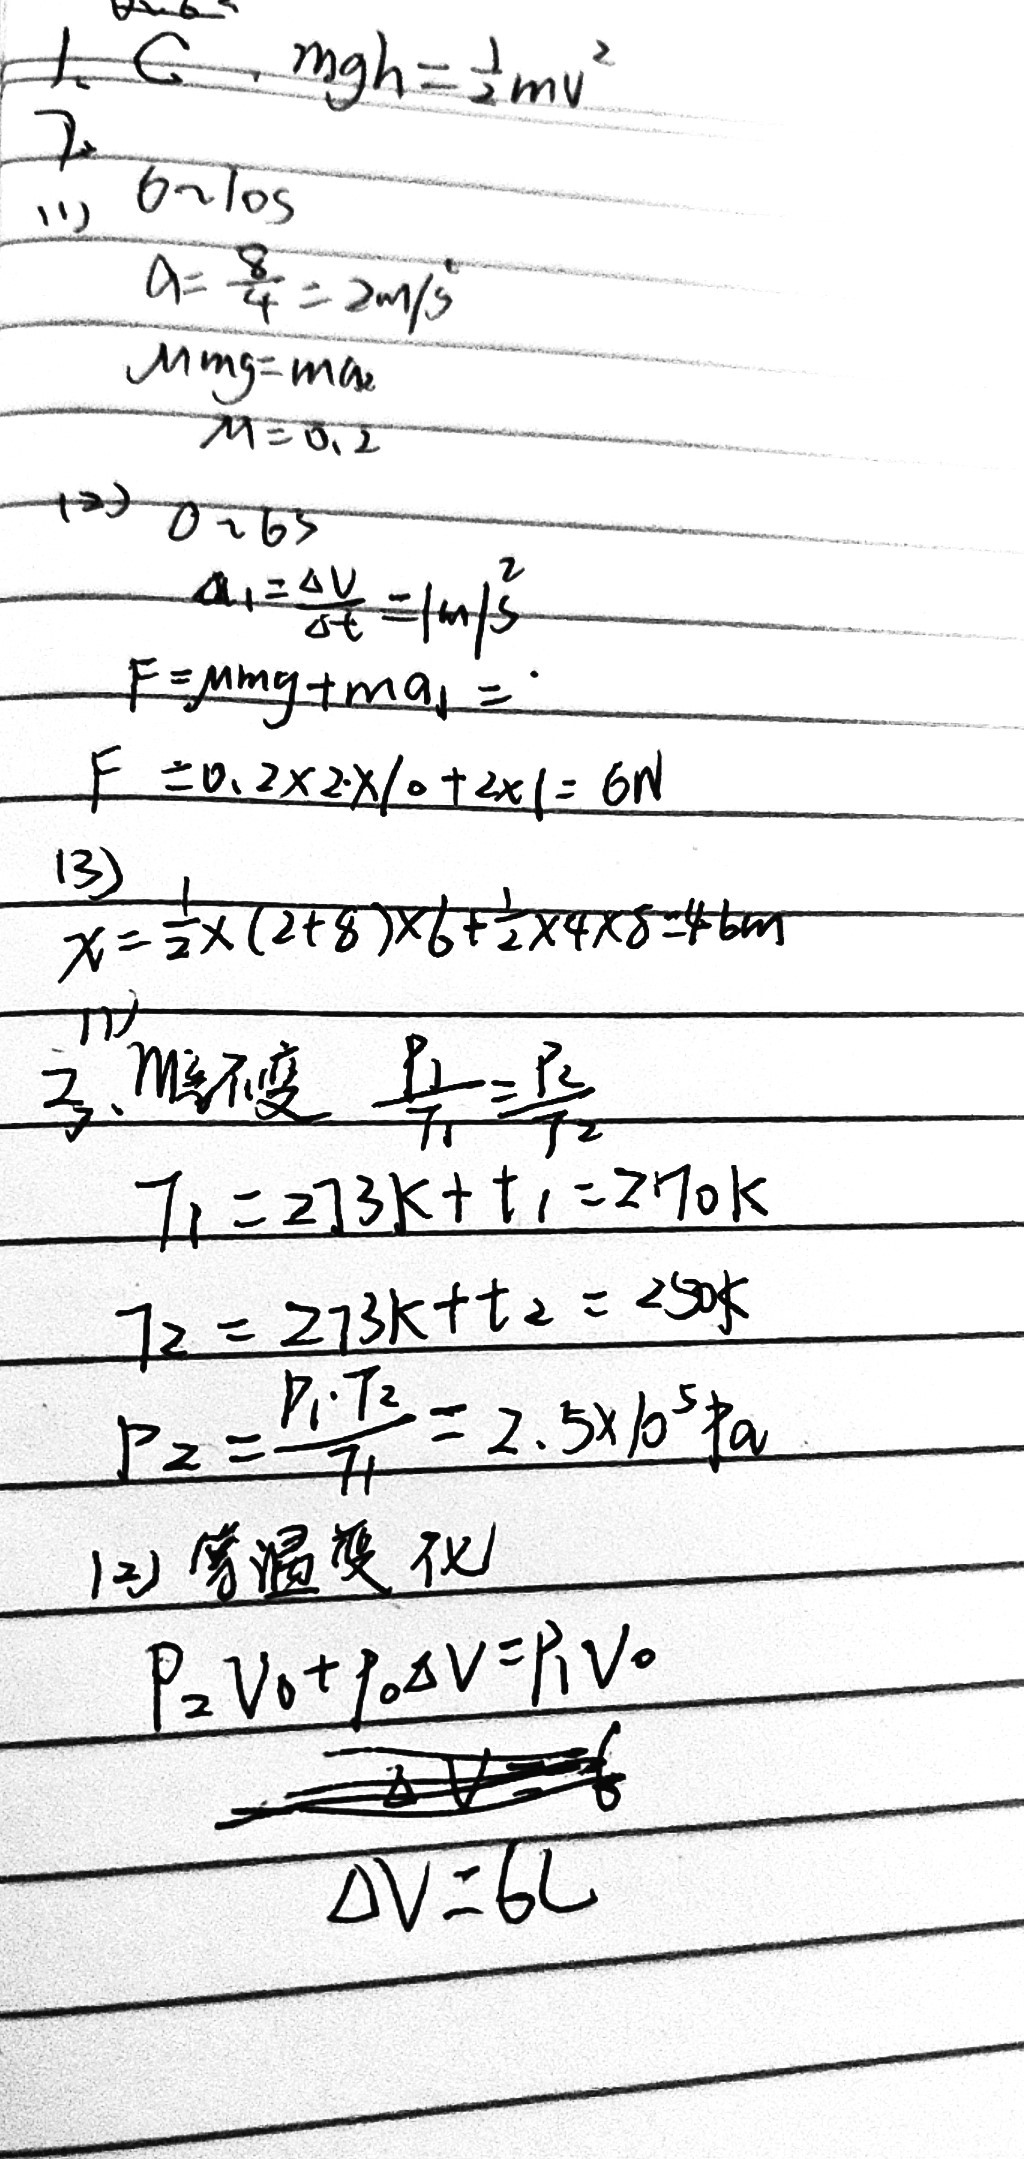 1. C . mgh=½mv²
7.
(1) 6~10s
a=8/4=2m/s²
μmg=ma₂
μ=0.2
(2) 0~6s
a₁=ΔV/Δt=1m/s²
F=μmg+ma₁=
F=0.2×2×10+2×1=6N
(3)
x=½×(2+8)×6+½×4×8=46m
(1)
不变 P₁/T₁=P₂/T₂
T₁=273K+t₁=270K
T₂=273K+t₂=250K
P₂=P₁·T₂/T₁=2.5×10⁵Pa
(2) 等温变化
P₂V₀+P₀ΔV=P₁V₀
ΔV=6L